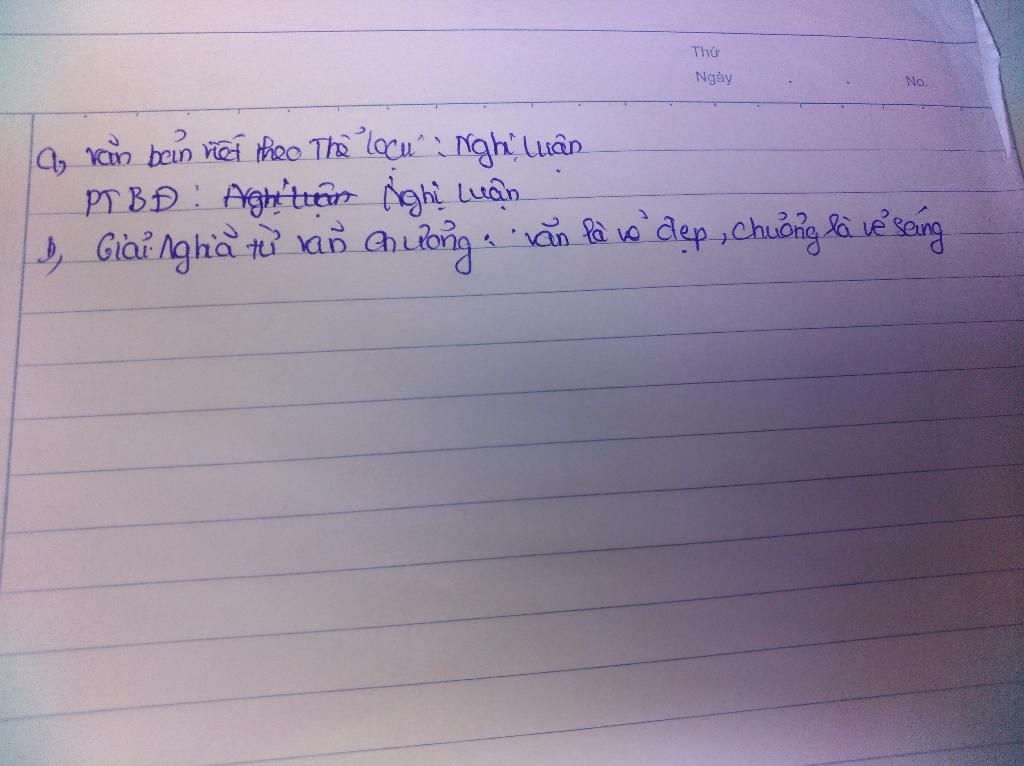 Thứ
Ngày . . No.
a, văn bản viết theo Thể loại : Nghị luận
PTBĐ : Nghị luận Nghị luận
b, Giải Nghĩa từ văn chương : văn là vẻ đẹp, chương là vẻ sáng